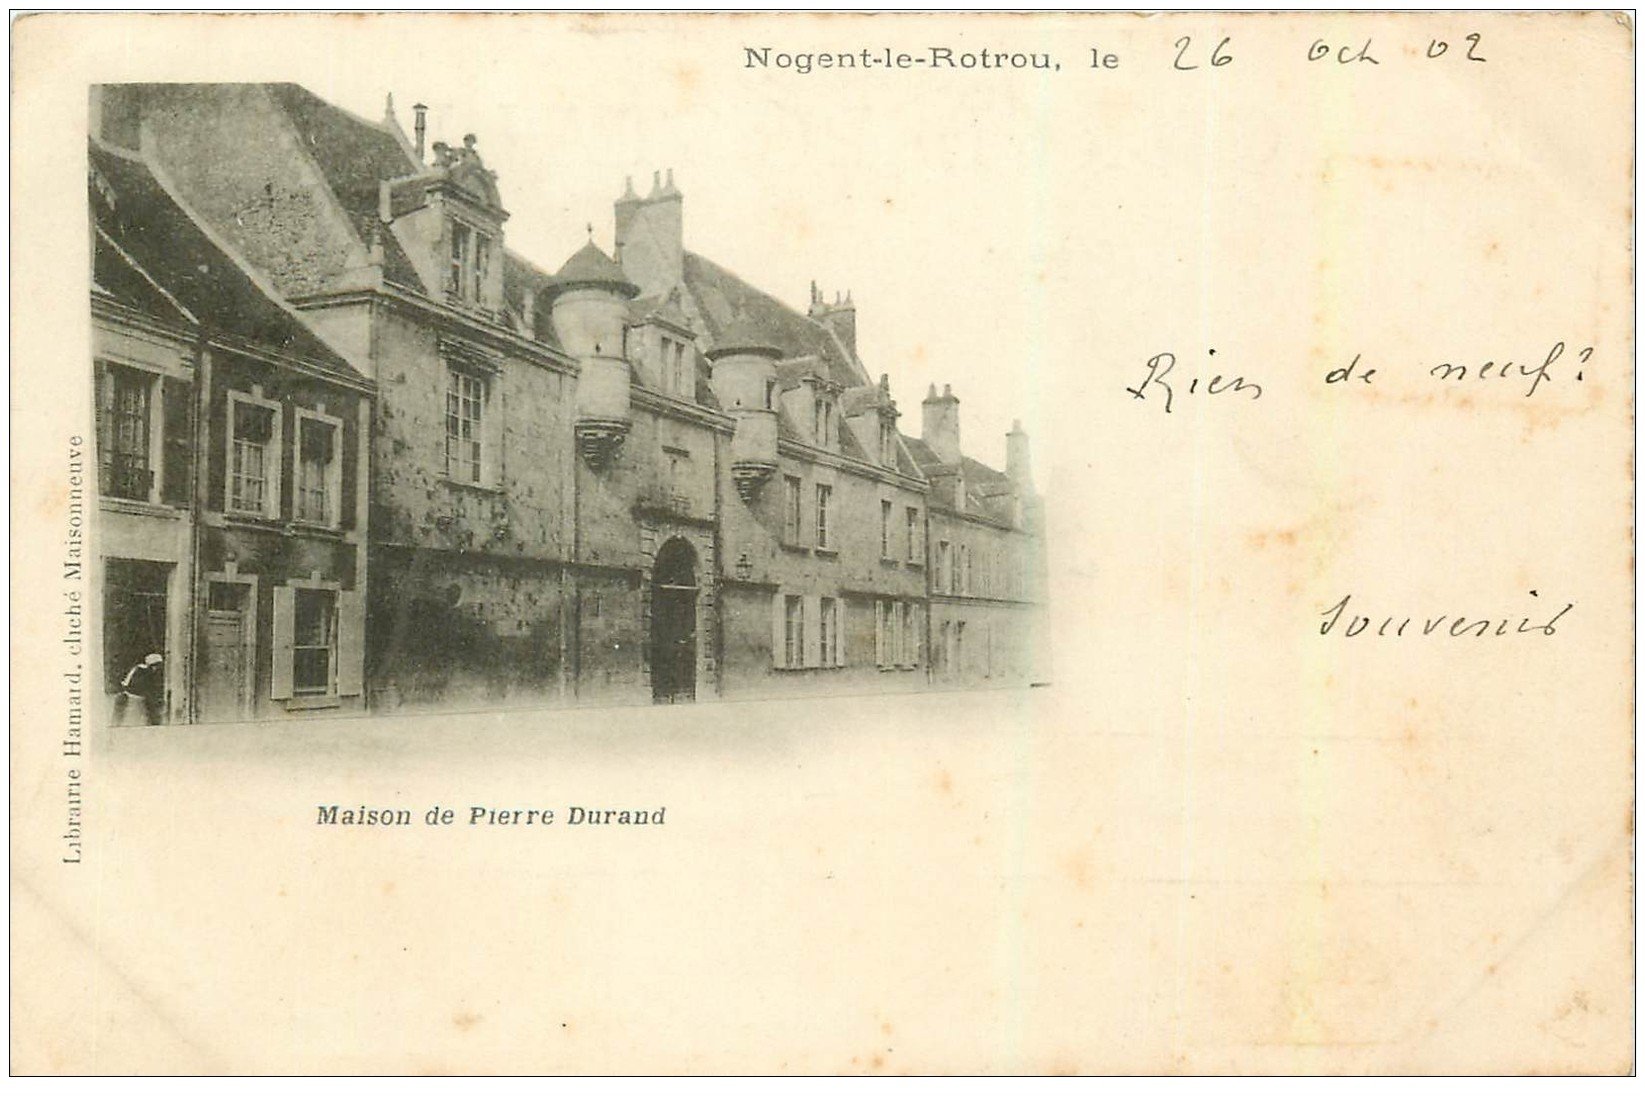 Nogent-le-Rotrou, le 26 Oct 02
Rien de neuf?
Souvenirs
Maison de Pierre Durand
Librairie Hamard, cliché Maisonneuve